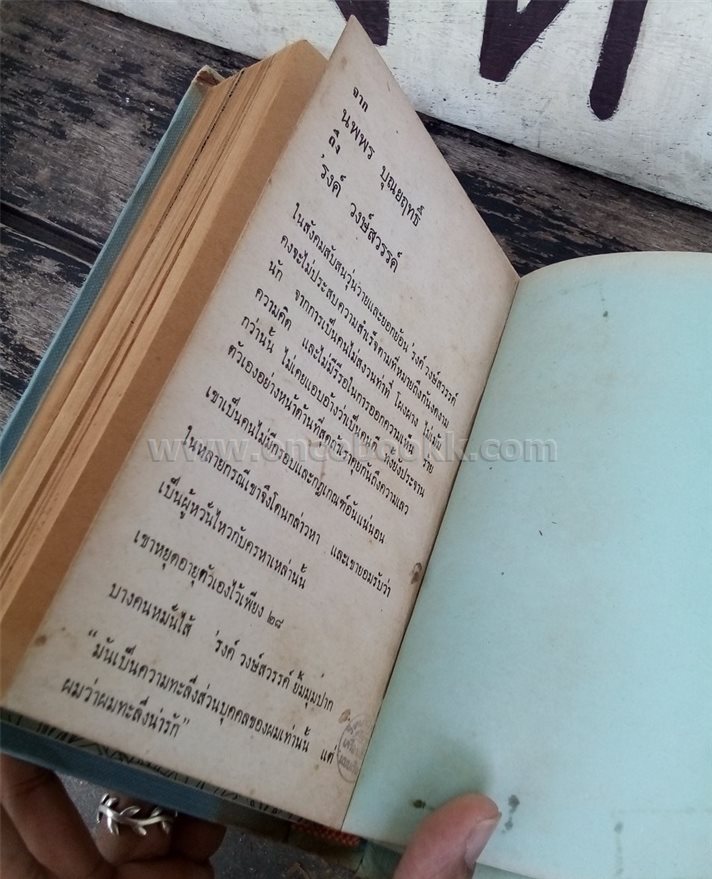 จาก
นพพร บุณยฤทธิ์
ถึง
'รงค์ วงษ์สวรรค์
ในสังคมสับสนวุ่นวายและยอกย้อน 'รงค์ วงษ์สวรรค์
คงจะไม่ประสบความสำเร็จตามที่หมายถึงกันงดงาม
นัก จากการเป็นคนไม่สงวนท่าที โผงผาง ไม่เน้น
ความคิด และไม่มีรีรอในการออกความเห็น ร้าย
กว่านั้น ไม่เคยแอบอ้างว่าเป็นคนดี
ตัวเองอย่างหน้าด้านที่สุดถ้าเราคุยกันถึงความเลว
เขาเป็นคนไม่มีกรอบและกฎเกณฑ์อันแน่นอน
ในหลายกรณีเขาจึงโดนกล่าวหา และเขายอมรับว่า
เป็นผู้หวั่นไหวกับครหาเหล่านั้น
เขาหยุดอายุตัวเองไว้เพียง ๒๘
บางคนหมั่นไส้ 'รงค์ วงษ์สวรรค์ ยิ้มมุมปาก
"มันเป็นความทะลึ่งส่วนบุคคลของผมเท่านั้น แต่
ผมว่าผมทะลึ่งน่ารัก"
www.oncebookk.com